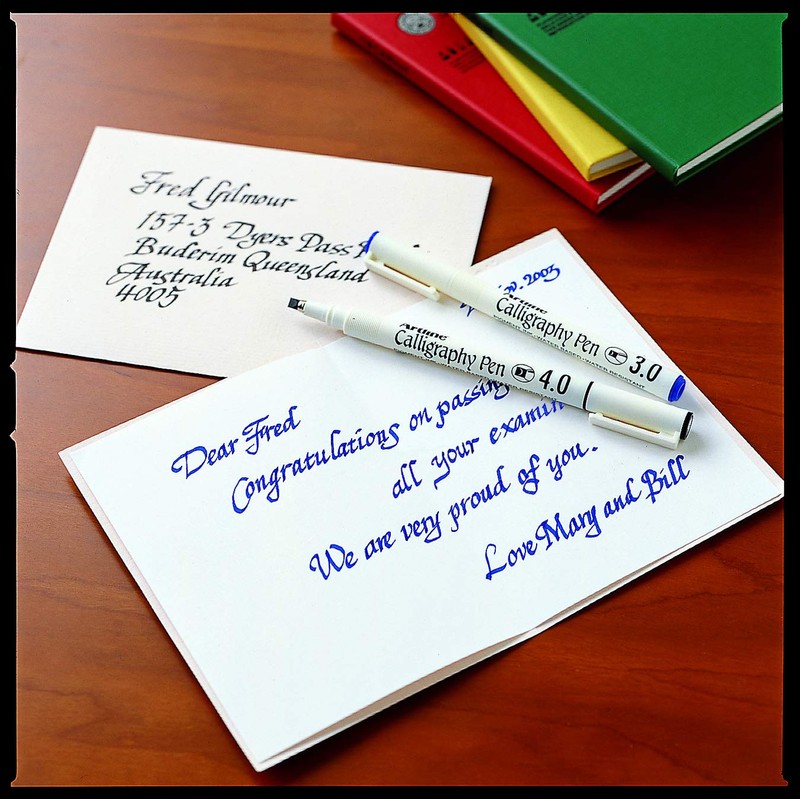 Fred Gilmour
157-3 Dyers Pass
Buderim Queensland
Australia
4005
2003
Artline
Calligraphy Pen 3.0
Artline
Calligraphy Pen 4.0
Dear Fred
Congratulations on passing
all your examin
We are very proud of you.
Love Mary and Bill